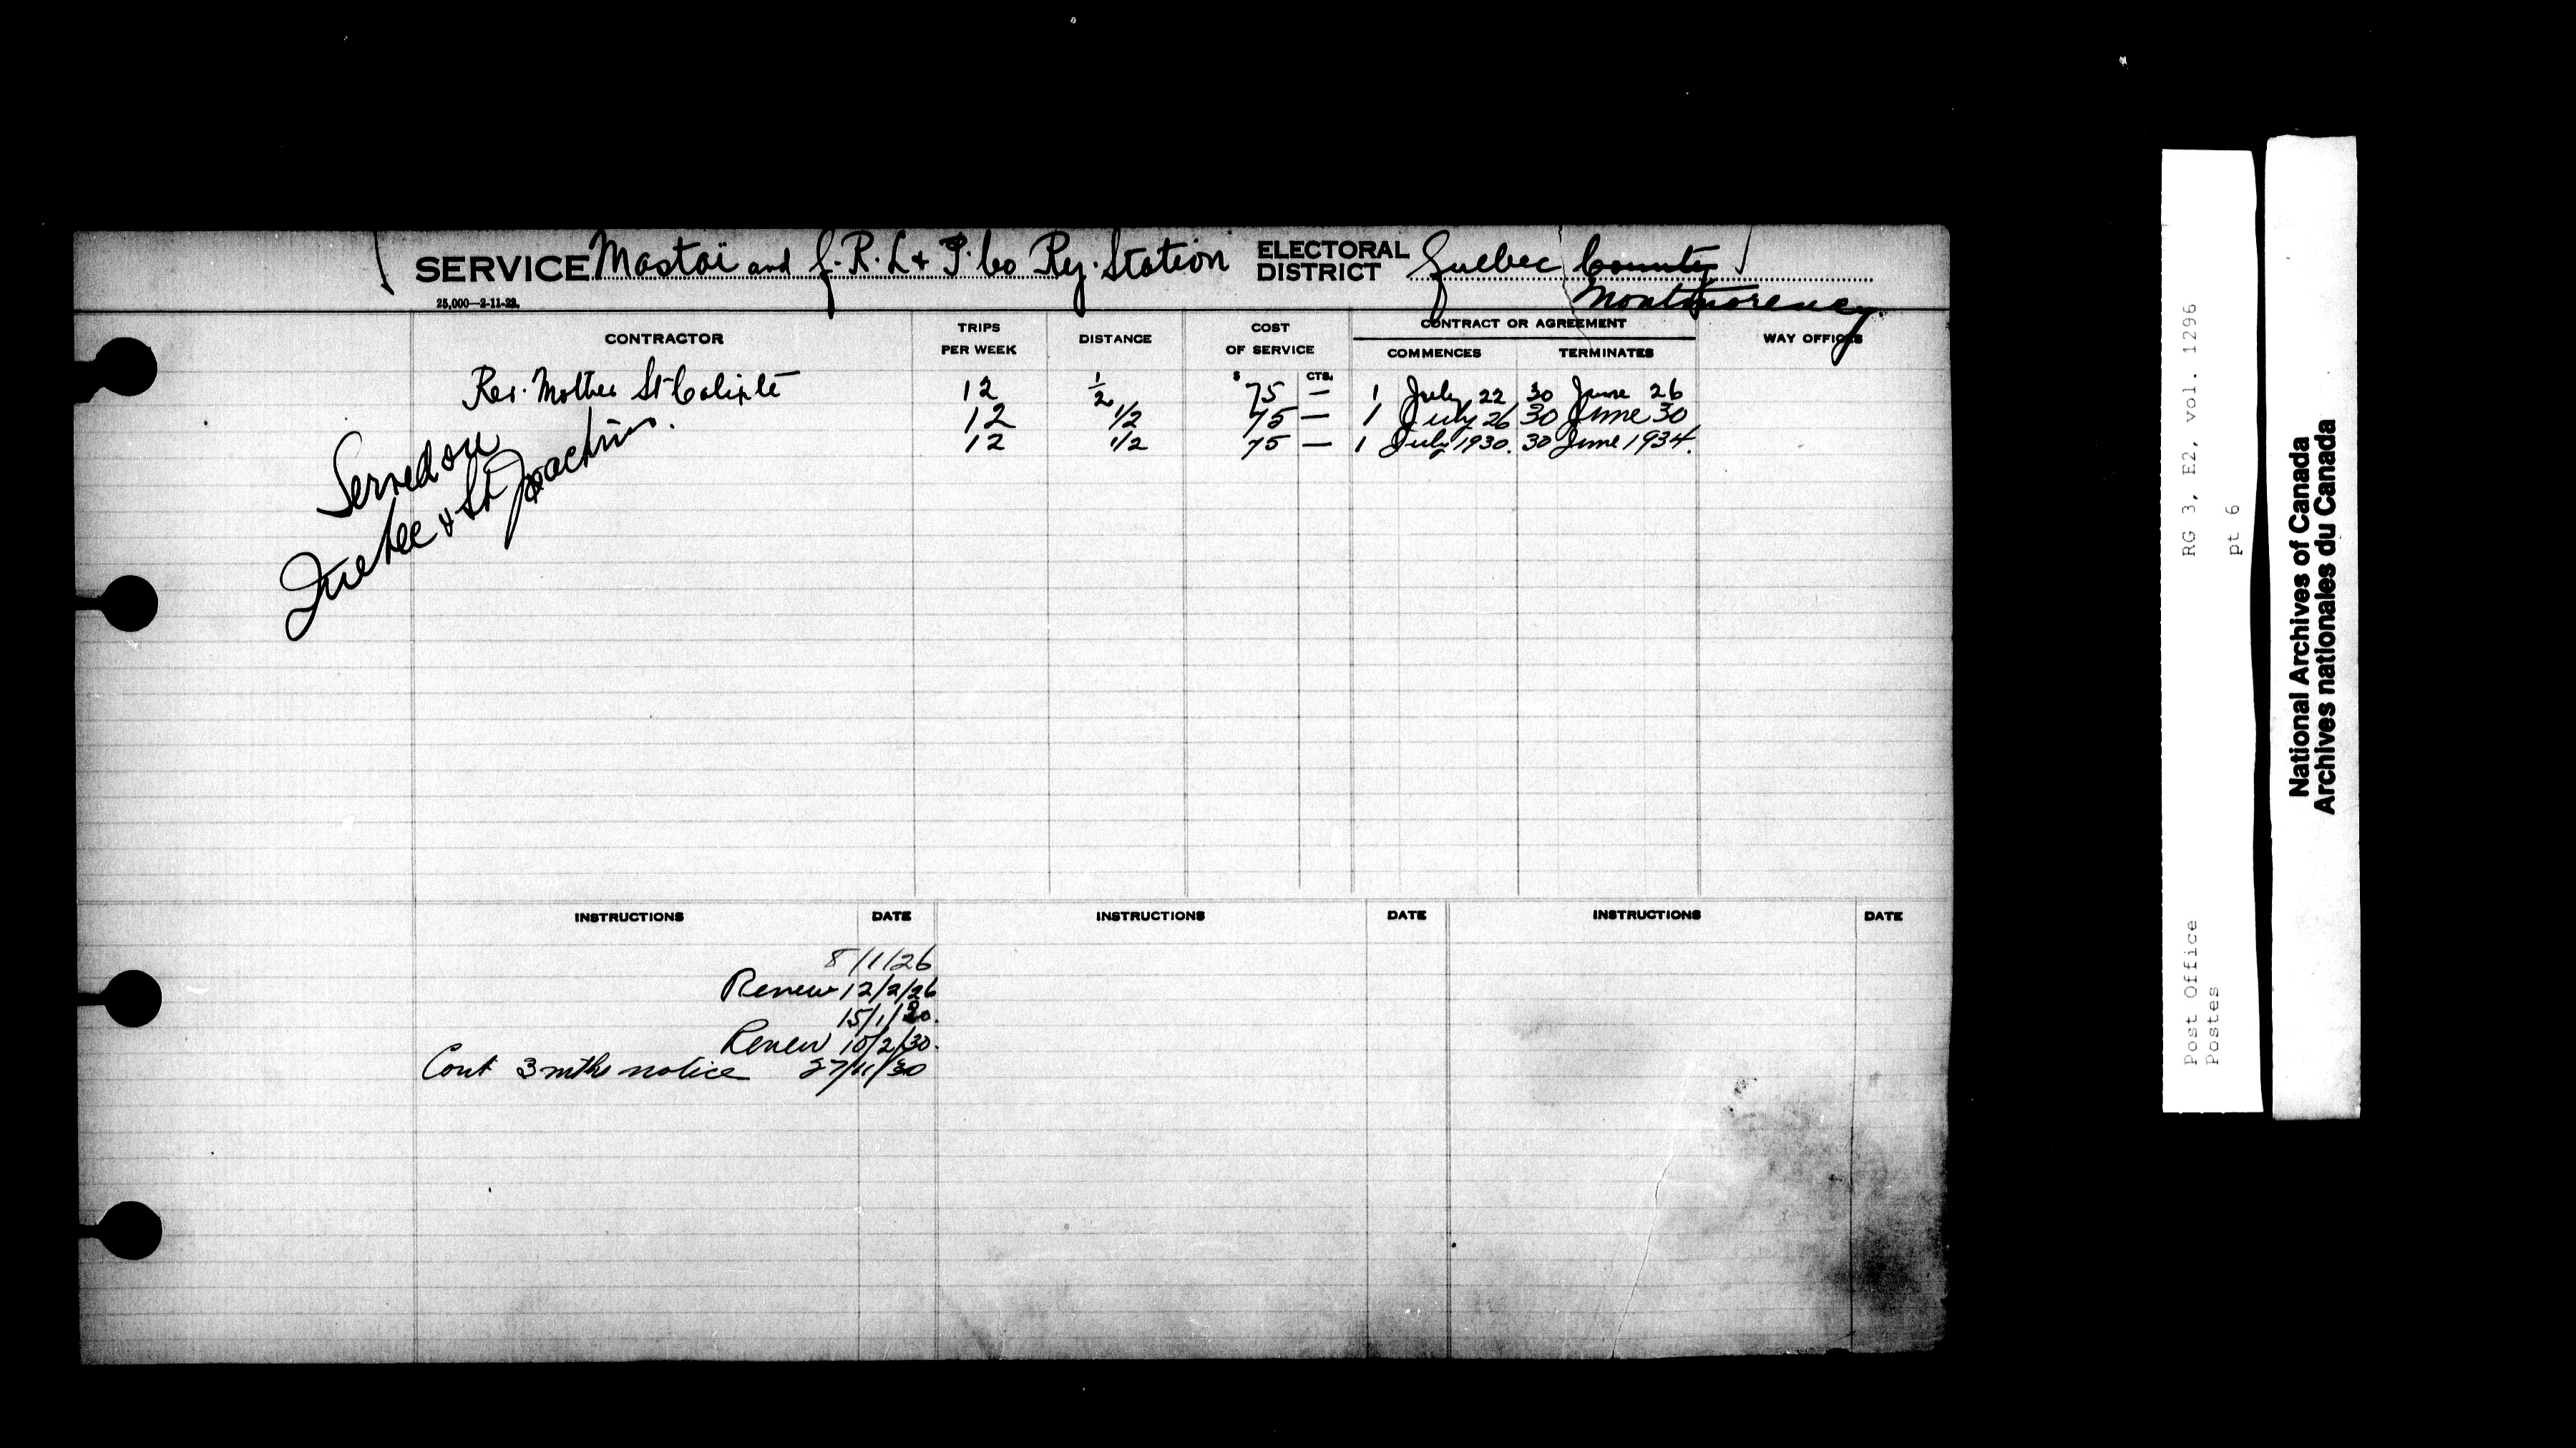 SERVICE Mastaï and Q.R.L & P. Co Ry. Station ELECTORAL DISTRICT Quebec County
Montmorency
25,000—2-11-22.
CONTRACTOR TRIPS PER WEEK DISTANCE COST OF SERVICE CONTRACT OR AGREEMENT COMMENCES TERMINATES WAY OFFICES
$ CTS.
Rev. Mother St Calixte 12 1/2 75 — 1 July 22 30 June 26
12 1/2 75 — 1 July 26 30 June 30
12 1/2 75 — 1 July 1930. 30 June 1934.
Served on
Quebec & St Joachim.
INSTRUCTIONS DATE INSTRUCTIONS DATE INSTRUCTIONS DATE
8/1/26
Renew 12/2/26
15/1/30.
Renew 10/2/30.
Cont 3 mths notice 27/11/30
RG 3, E2, vol. 1296
pt 6
Post Office
Postes
National Archives of Canada
Archives nationales du Canada